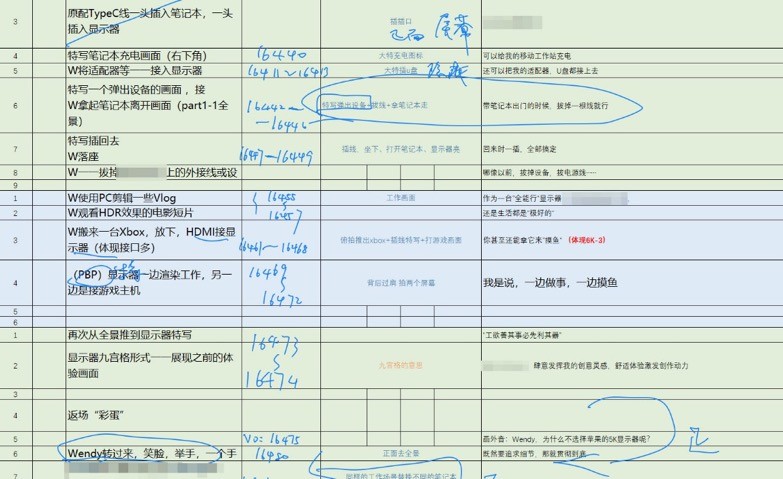 3
原配TypeC线一头插入笔记本，一头
插入显示器
插插口
屏幕
4
特写笔记本充电画面（右下角）
16440
大特充电图标
可以给我的移动工作站充电
5
W将适配器等——接入显示器
16411~16413
大特插u盘
还可以把我的适配器、U盘都接上去
6
特写一个弹出设备的画面，接
W拿起笔记本离开画面（part1-1全
景）
16442—
—16446
特写弹出设备+拔线+拿笔记本走
带笔记本出门的时候，拔掉一根线就行
7
特写插回去
W落座
16447—16449
插线、坐下、打开笔记本、显示器亮
回来时一插，全部搞定
8
W——拔掉
上的外接线或设
哪像以前，拔掉设备，拔电源线……
1
W使用PC剪辑一些Vlog
16455
工作画面
作为一台“全能行”显示器
2
W观看HDR效果的电影短片
16457
还是生活都是“极好的”
3
W搬来一台Xbox，放下，HDMI接显
示器（体现接口多）
16461~16468
俯拍推出xbox+插线特写+打游戏画面
你甚至还能拿它来“摸鱼”（体现6K-3）
4
（PBP）显示器一边渲染工作，另一
边是接游戏主机
16469
16472
背后过肩 拍两个屏幕
我是说，一边做事，一边摸鱼
5
6
1
再次从全景推到显示器特写
16473
“工欲善其事必先利其器”
2
显示器九宫格形式——展现之前的体
验画面
16474
九宫格的意思
肆意发挥我的创意灵感，舒适体验激发创作动力
3
4
返场“彩蛋”
5
VO：16475
画外音：Wendy，为什么不选择苹果的5K显示器呢？
6
Wendy转过来，笑脸，举手，一个手
16480
正面去全景
既然要追求细节，那就贯彻到底
7
同样的工作场景替换不同的笔记本